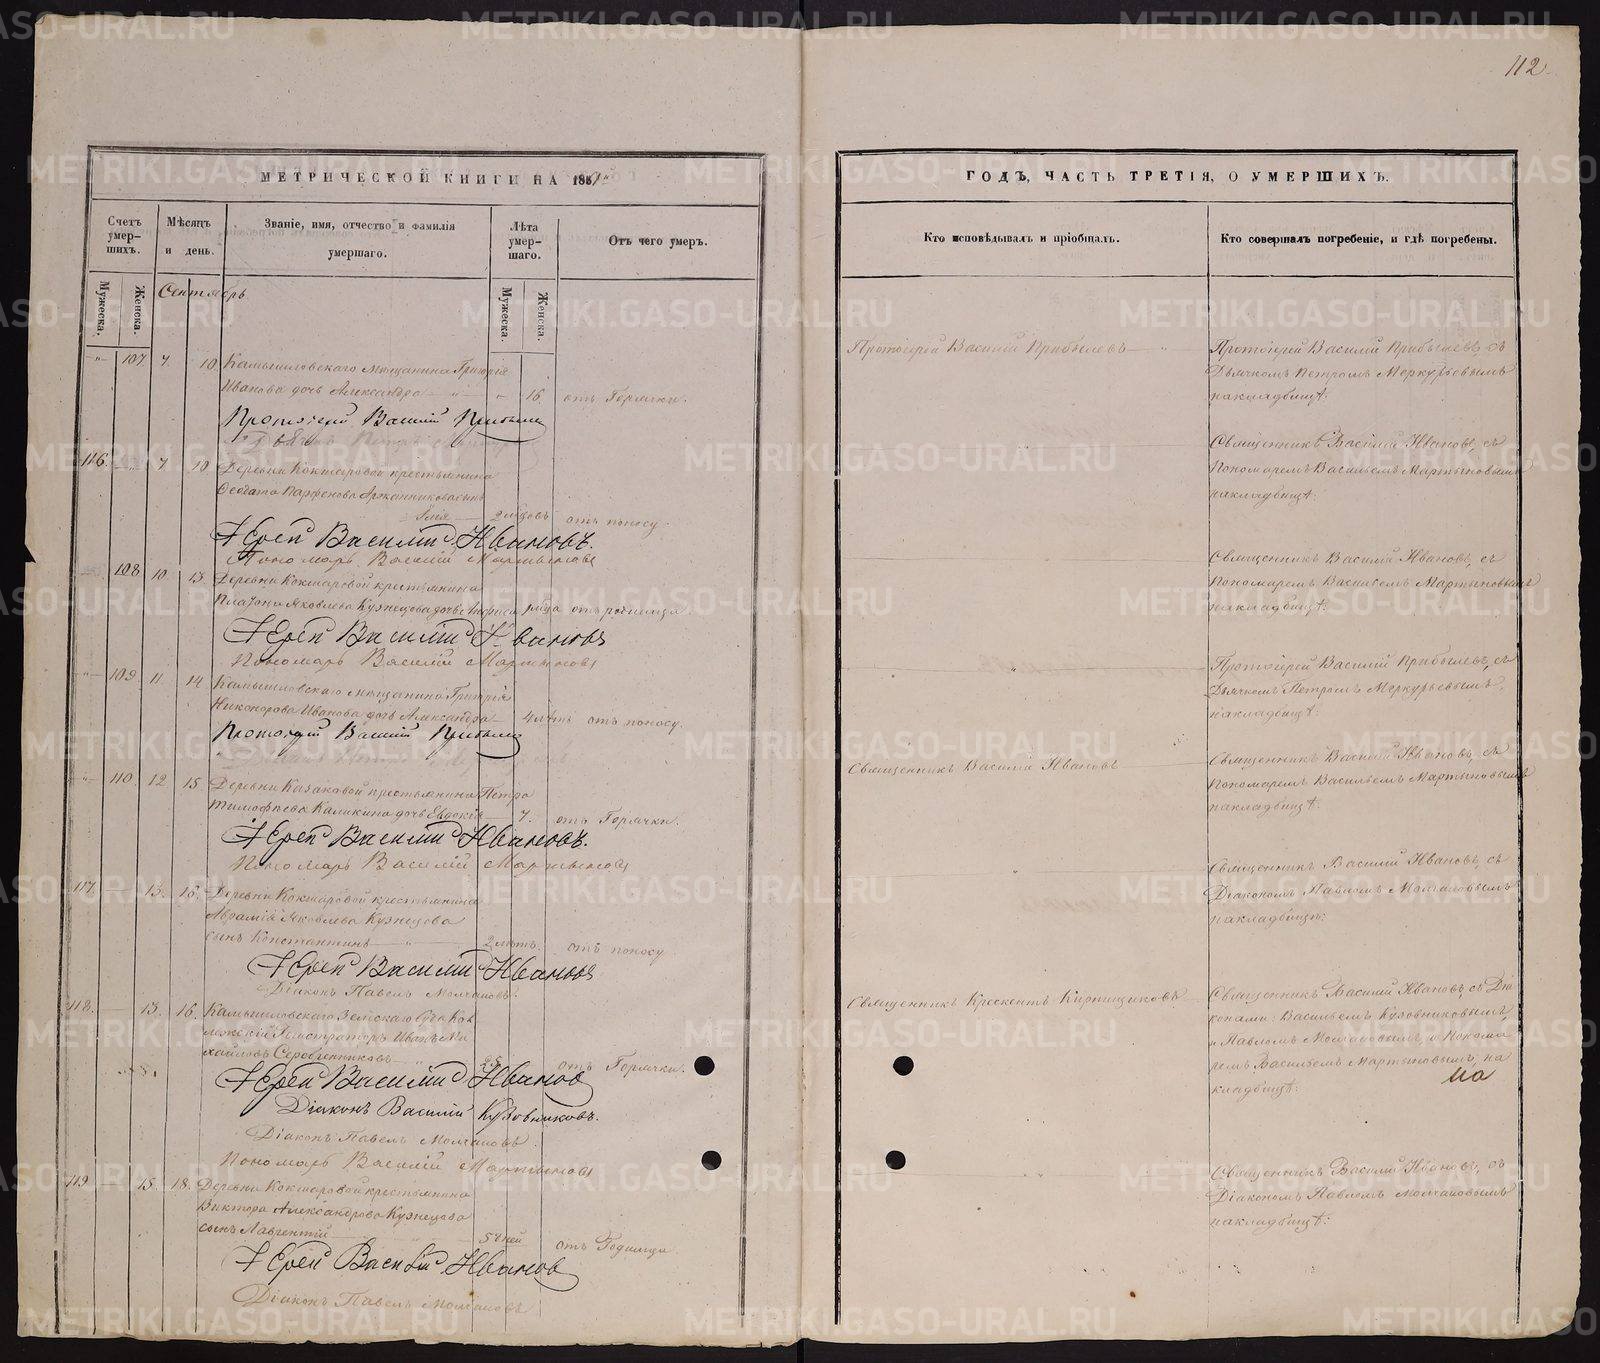 112
МЕТРИЧЕСКОЙ КНИГИ НА 186
Счетъ умер-шихъ.
Мѣсяцъ и день.
Званіе, имя, отчество и фамилія умершаго.
Лѣта умер-шаго.
Отъ чего умеръ.
Мужеска.
Женска.
Мужеска.
Женска.
Сентябрь
107 7 10 Камышловскаго Мѣщанина Григорія
Иванова дочь Александра 16 отъ Горячки.
Протоіерей Василій
116. 7 10 Деревни Кокшаровой крестьянина
Ѳеодота Парѳенова сынъ
отъ поносу.
Іерей Василій Ивановъ.
Пономарь Василій Мартыновъ
108 10 13 Деревни Кокшаровой крестьянина
Платона Яковлева Кузнецова дочь отъ родимца.
Іерей Василій Ивановъ
Пономарь Василій Мартыновъ
109 11 14 Камышловскаго мѣщанина Григорія
Никонорова Иванова дочь Александра 4 лѣтъ отъ поносу.
Протоіерей Василій
110 12 15 Деревни Казаковой крестьянина Петра
Тимофѣева Каликина дочь Евдокія 7. отъ Горячки.
Іерей Василій Ивановъ.
Пономарь Василій Мартыновъ
117. 13. 15. Деревни Кокшаровой крестьянина
Аврамія Яковлева Кузнецова
сынъ Константинъ 2 лѣтъ. отъ поносу
Іерей Василій Ивановъ
Діаконъ Павелъ Молчановъ.
118. 13. 16. Камышловскаго Земскаго Суда Кол
лежскій Регистраторъ Иванъ Ми
хайловъ Серебренниковъ отъ Горячки.
Іерей Василій Ивановъ
Діаконъ Василій Кузовниковъ.
Діаконъ Павелъ Молчановъ.
Пономарь Василій Мартыновъ
119 15. 18. Деревни Кокшаровой крестьянина
Виктора Александрова Кузнецова
сынъ Лаврентій 5 дней отъ Родимца
Іерей Василій Ивановъ
Діаконъ Павелъ Молчановъ
ГОДЪ, ЧАСТЬ ТРЕТІЯ, О УМЕРШИХЪ.
Кто исповѣдывалъ и пріобщалъ.
Кто совершалъ погребеніе, и гдѣ погребены.
Протоіерей Василій Прибылевъ
Протоіерей Василій Прибылевъ, съ
Дьячкомъ Петромъ Меркурьевымъ
на кладбищѣ.
Священникъ Василій Ивановъ, съ
Пономаремъ Васильемъ Мартыновымъ
на кладбищѣ.
Священникъ Василій Ивановъ, съ
Пономаремъ Васильемъ Мартыновымъ
на кладбищѣ.
Протоіерей Василій Прибылевъ, съ
Дьячкомъ Петромъ Меркурьевымъ,
на кладбищѣ.
Священникъ Василій Ивановъ
Священникъ Василій Ивановъ, съ
Пономаремъ Васильемъ Мартыновымъ
на кладбищѣ.
Священникъ Василій Ивановъ, съ
Діакономъ Павломъ Молчановымъ
на кладбищѣ.
Священникъ Крескентъ Кирпищиковъ
Священникъ Василій Ивановъ, съ Діа
конами: Васильемъ Кузовниковымъ,
и Павломъ Молчановымъ, и Понома
ремъ Васильемъ Мартыновымъ, на
кладбищѣ.
Священникъ Василій Ивановъ, съ
Діакономъ Павломъ Молчановымъ
на кладбищѣ.
METRIKI.GASO-URAL.RU